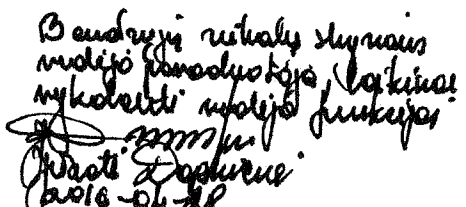 Bendrųjų reikalų skyriaus
vedėjo pavaduotoja, laikinai
vykdanti vedėjo funkcijas
Jūratė
2016-04-28